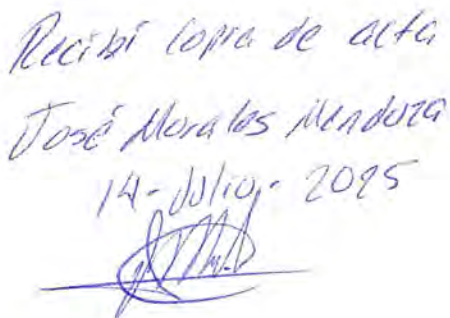 Recibí copia de acta
José Morales Mendoza
14-Julio,- 2025